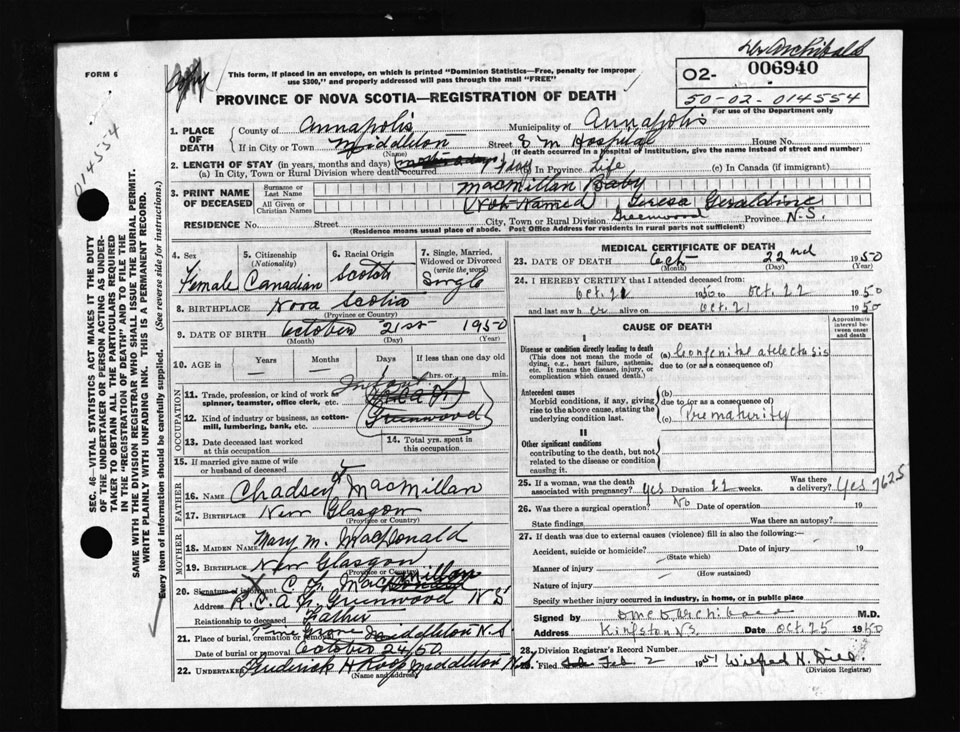 Dr Archibald
FORM 6
This form, if placed in an envelope, on which is printed "Dominion Statistics—Free, penalty for improper
use $300," and properly addressed will pass through the mail "FREE"
O2- 006940
50-02-014554
For use of the Department only
PROVINCE OF NOVA SCOTIA—REGISTRATION OF DEATH
014554
SEC. 46—VITAL STATISTICS ACT MAKES IT THE DUTY
OF THE UNDERTAKER OR PERSON ACTING AS UNDER-
TAKER TO OBTAIN ALL THE PARTICULARS REQUIRED
IN THE "REGISTRATION OF DEATH" AND TO FILE THE
SAME WITH THE DIVISION REGISTRAR WHO SHALL ISSUE THE BURIAL PERMIT.
WRITE PLAINLY WITH UNFADING INK. THIS IS A PERMANENT RECORD.
Every item of information should be carefully supplied. (See reverse side for instructions.)
1. PLACE OF DEATH County of Annapolis Municipality of Annapolis
If in City or Town Middleton Street S M Hospital House No.
(Name) (If death occurred in a Hospital of Institution, give the name instead of street and number)
2. LENGTH OF STAY (in years, months and days)
(a) In City, Town or Rural Division where death occurred 1 day (b) In Province Life (c) In Canada (if immigrant)
3. PRINT NAME OF DECEASED Surname or Last Name MacMillan Baby
All Given or Christian Names (Not Named) Teresa Geraldine
RESIDENCE No. Street City, Town or Rural Division Greenwood Province N.S.
(Residence means usual place of abode. Post Office Address for residents in rural parts not sufficient)
4. Sex Female
5. Citizenship (Nationality) Canadian
6. Racial Origin Scotch
7. Single, Married, Widowed or Divorced (write the word) Single
8. BIRTHPLACE Nova Scotia
(Province or Country)
9. DATE OF BIRTH October 21st 1950
(Month) (Day) (Year)
10. AGE Years Months Days 1 If less than one day old
hrs. or min.
OCCUPATION
11. Trade, profession, or kind of work as
spinner, teamster, office clerk, etc. Infant
12. Kind of industry or business, as cotton-
mill, lumbering, bank, etc. Greenwood
13. Date deceased last worked
at this occupation
14. Total yrs. spent in
this occupation
15. If married give name of wife
or husband of deceased
FATHER
16. NAME Chadsey MacMillan
17. BIRTHPLACE New Glasgow
(Province or Country)
MOTHER
18. MAIDEN NAME Mary M. MacDonald
19. BIRTHPLACE New Glasgow
(Province or Country)
20. Signature of informant X C. Y. MacMillan
Address R.C.A.F. Greenwood N S
Relationship to deceased Father
21. Place of burial, cremation or removal Pine Grove Middleton N.S
Date of burial or removal October 24/50
22. UNDERTAKER Frederick H Roop Middleton N.S.
(Name and address)
MEDICAL CERTIFICATE OF DEATH
23. DATE OF DEATH Oct 22nd 1950
(Month) (Day) (Year)
24. I HEREBY CERTIFY that I attended deceased from:
Oct. 21 1950 to Oct. 22 1950
and last saw h er alive on Oct. 21 1950
CAUSE OF DEATH
Approximate interval between onset and death
I
Disease or condition directly leading to death (a) Congenital atelectasis
(This does not mean the mode of due to (or as a consequence of)
dying, e.g., heart failure, asthenia,
etc. It means the disease, injury, or
complication which caused death.)
Antecedent causes (b)
Morbid conditions, if any, giving due to (or as a consequence of)
rise to the above cause, stating the (c) Prematurity
underlying condition last.
II
Other significant conditions
contributing to the death, but not
related to the disease or condition
causing it.
25. If a woman, was the death Was there
associated with pregnancy? Yes Duration 21 weeks. a delivery? Yes 7625
26. Was there a surgical operation? No Date of operation 19
State findings Was there an autopsy?
27. If death was due to external causes (violence) fill in also the following:—
Accident, suicide or homicide? Date of injury 19
(State which)
Manner of injury
(How sustained)
Nature of injury
Specify whether injury occurred in industry, in home, or in public place
Signed by Archibald M.D.
Address Kingston N.S. Date Oct. 25 1950
28. Division Registrar's Record Number
Filed Feb 2 1951 Wilfred H.
(Division Registrar)